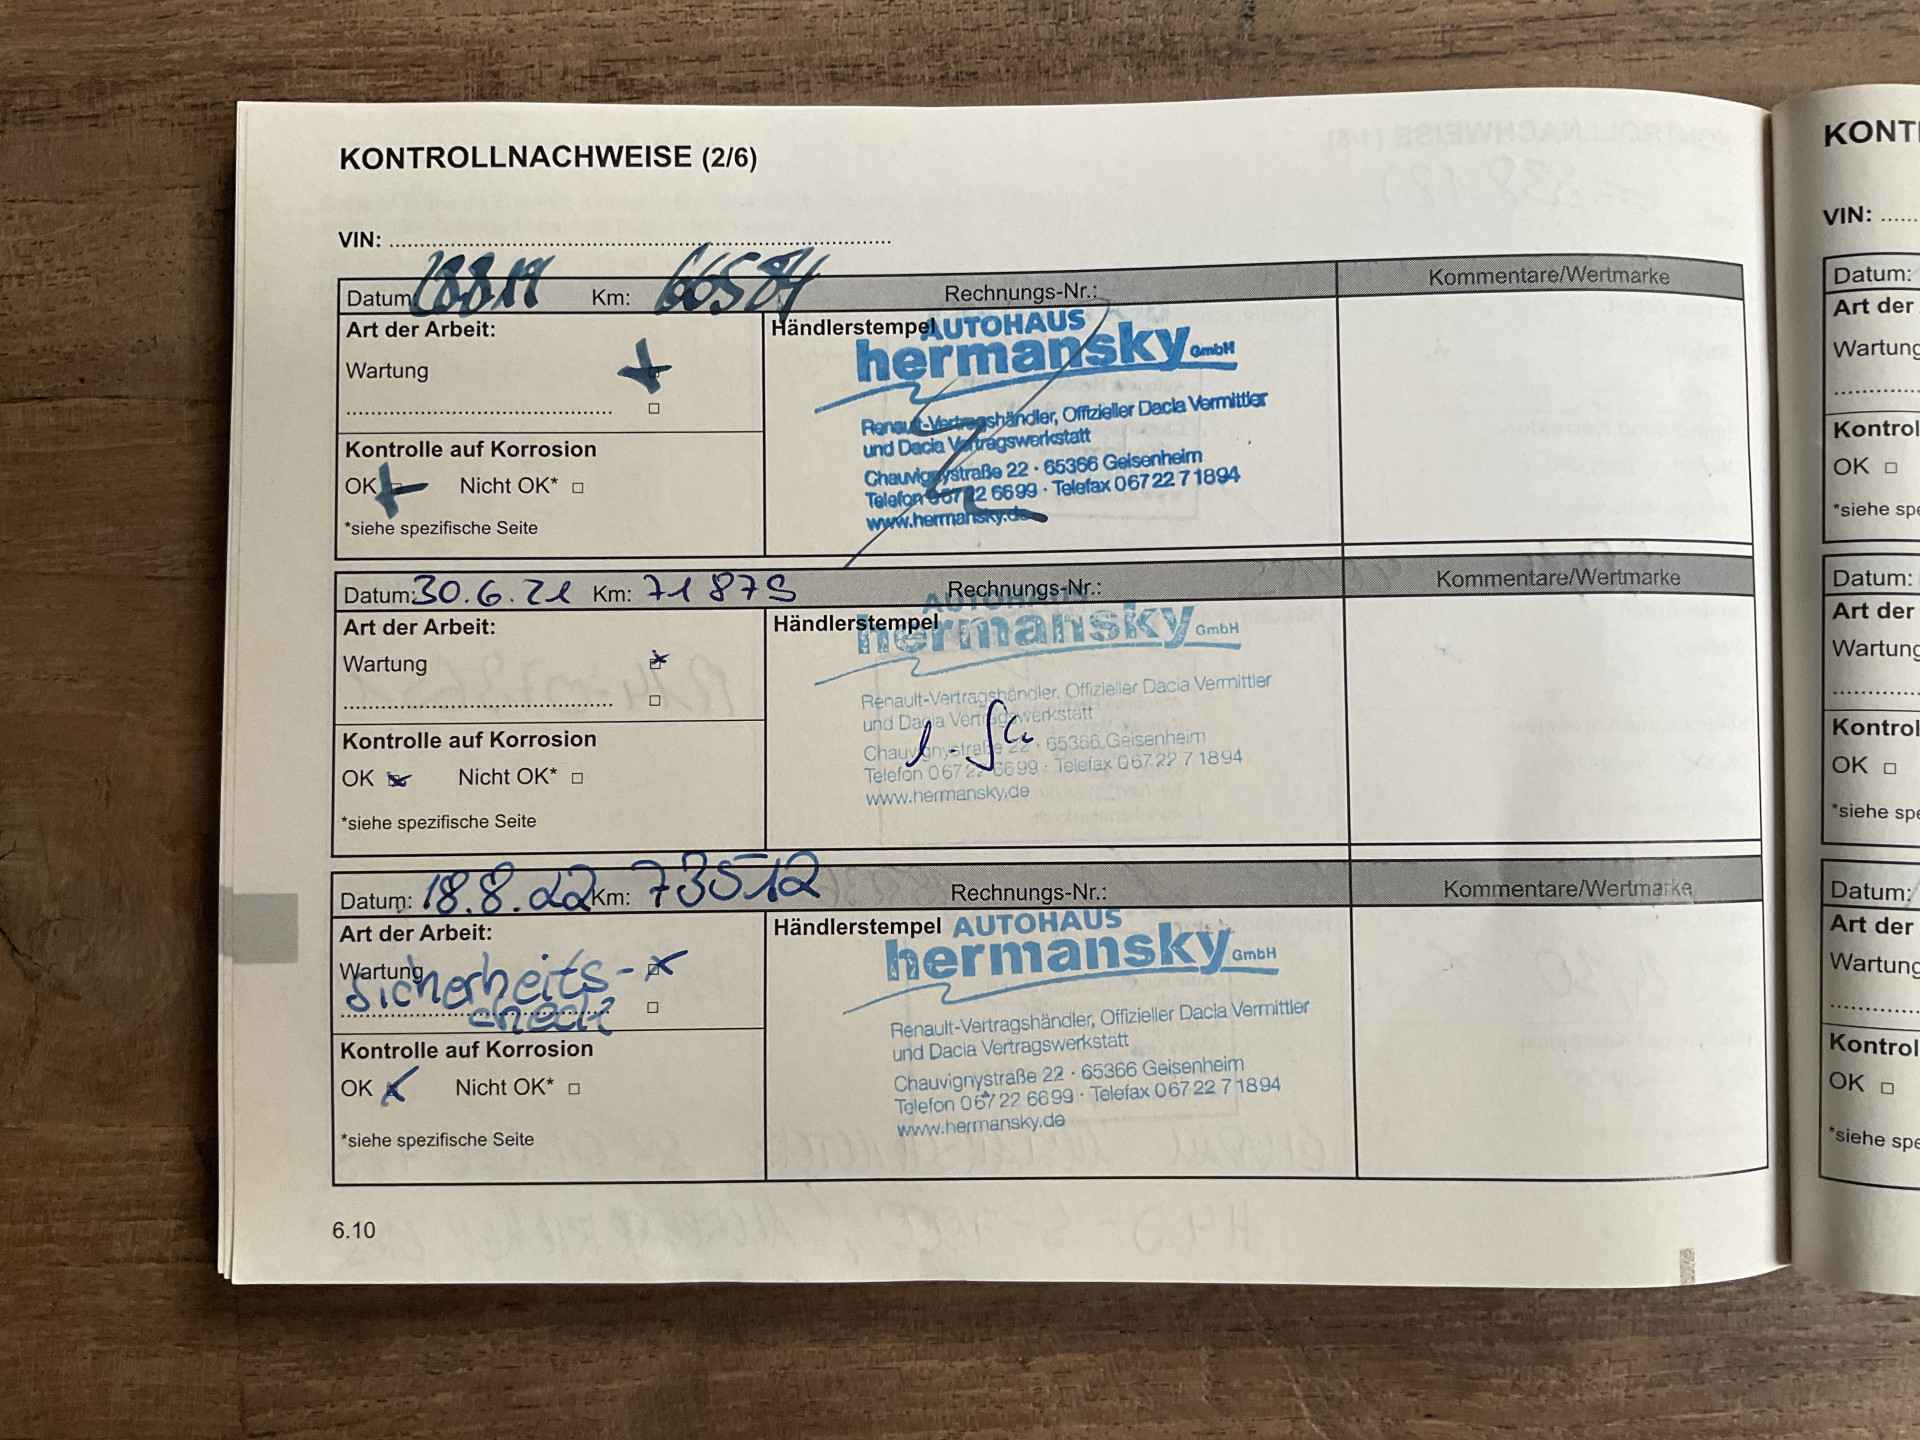 KONTROLLNACHWEISE (2/6)
VIN:
Datum: Km: 66584 Rechnungs-Nr.: Kommentare/Wertmarke
Art der Arbeit:
Wartung
Kontrolle auf Korrosion
OK Nicht OK*
*siehe spezifische Seite
Händlerstempel
AUTOHAUS
hermansky GmbH
Renault-Vertragshändler, Offizieller Dacia Vermittler
und Dacia Vertragswerkstatt
Chauvignystraße 22 · 65366 Geisenheim
Telefon 0 67 22 66 99 · Telefax 0 67 22 7 18 94
www.hermansky.de
Datum: 30.6.21 Km: 71879 Rechnungs-Nr.: Kommentare/Wertmarke
Art der Arbeit:
Wartung
Kontrolle auf Korrosion
OK Nicht OK*
*siehe spezifische Seite
Händlerstempel
AUTOHAUS
hermansky GmbH
Renault-Vertragshändler, Offizieller Dacia Vermittler
und Dacia Vertragswerkstatt
Chauvignystraße 22 · 65366 Geisenheim
Telefon 0 67 22 66 99 · Telefax 0 67 22 7 18 94
www.hermansky.de
Datum: 18.8.22 Km: 73512 Rechnungs-Nr.: Kommentare/Wertmarke
Art der Arbeit:
Wartung
Sicherheits-
check
Kontrolle auf Korrosion
OK Nicht OK*
*siehe spezifische Seite
Händlerstempel
AUTOHAUS
hermansky GmbH
Renault-Vertragshändler, Offizieller Dacia Vermittler
und Dacia Vertragswerkstatt
Chauvignystraße 22 · 65366 Geisenheim
Telefon 0 67 22 66 99 · Telefax 0 67 22 7 18 94
www.hermansky.de
6.10
KONT
VIN:
Datum:
Art der
Wartung
Kontrol
OK
*siehe spe
Datum:
Art der
Wartung
Kontrol
OK
*siehe spe
Datum:
Art der
Wartung
Kontrol
OK
*siehe spe